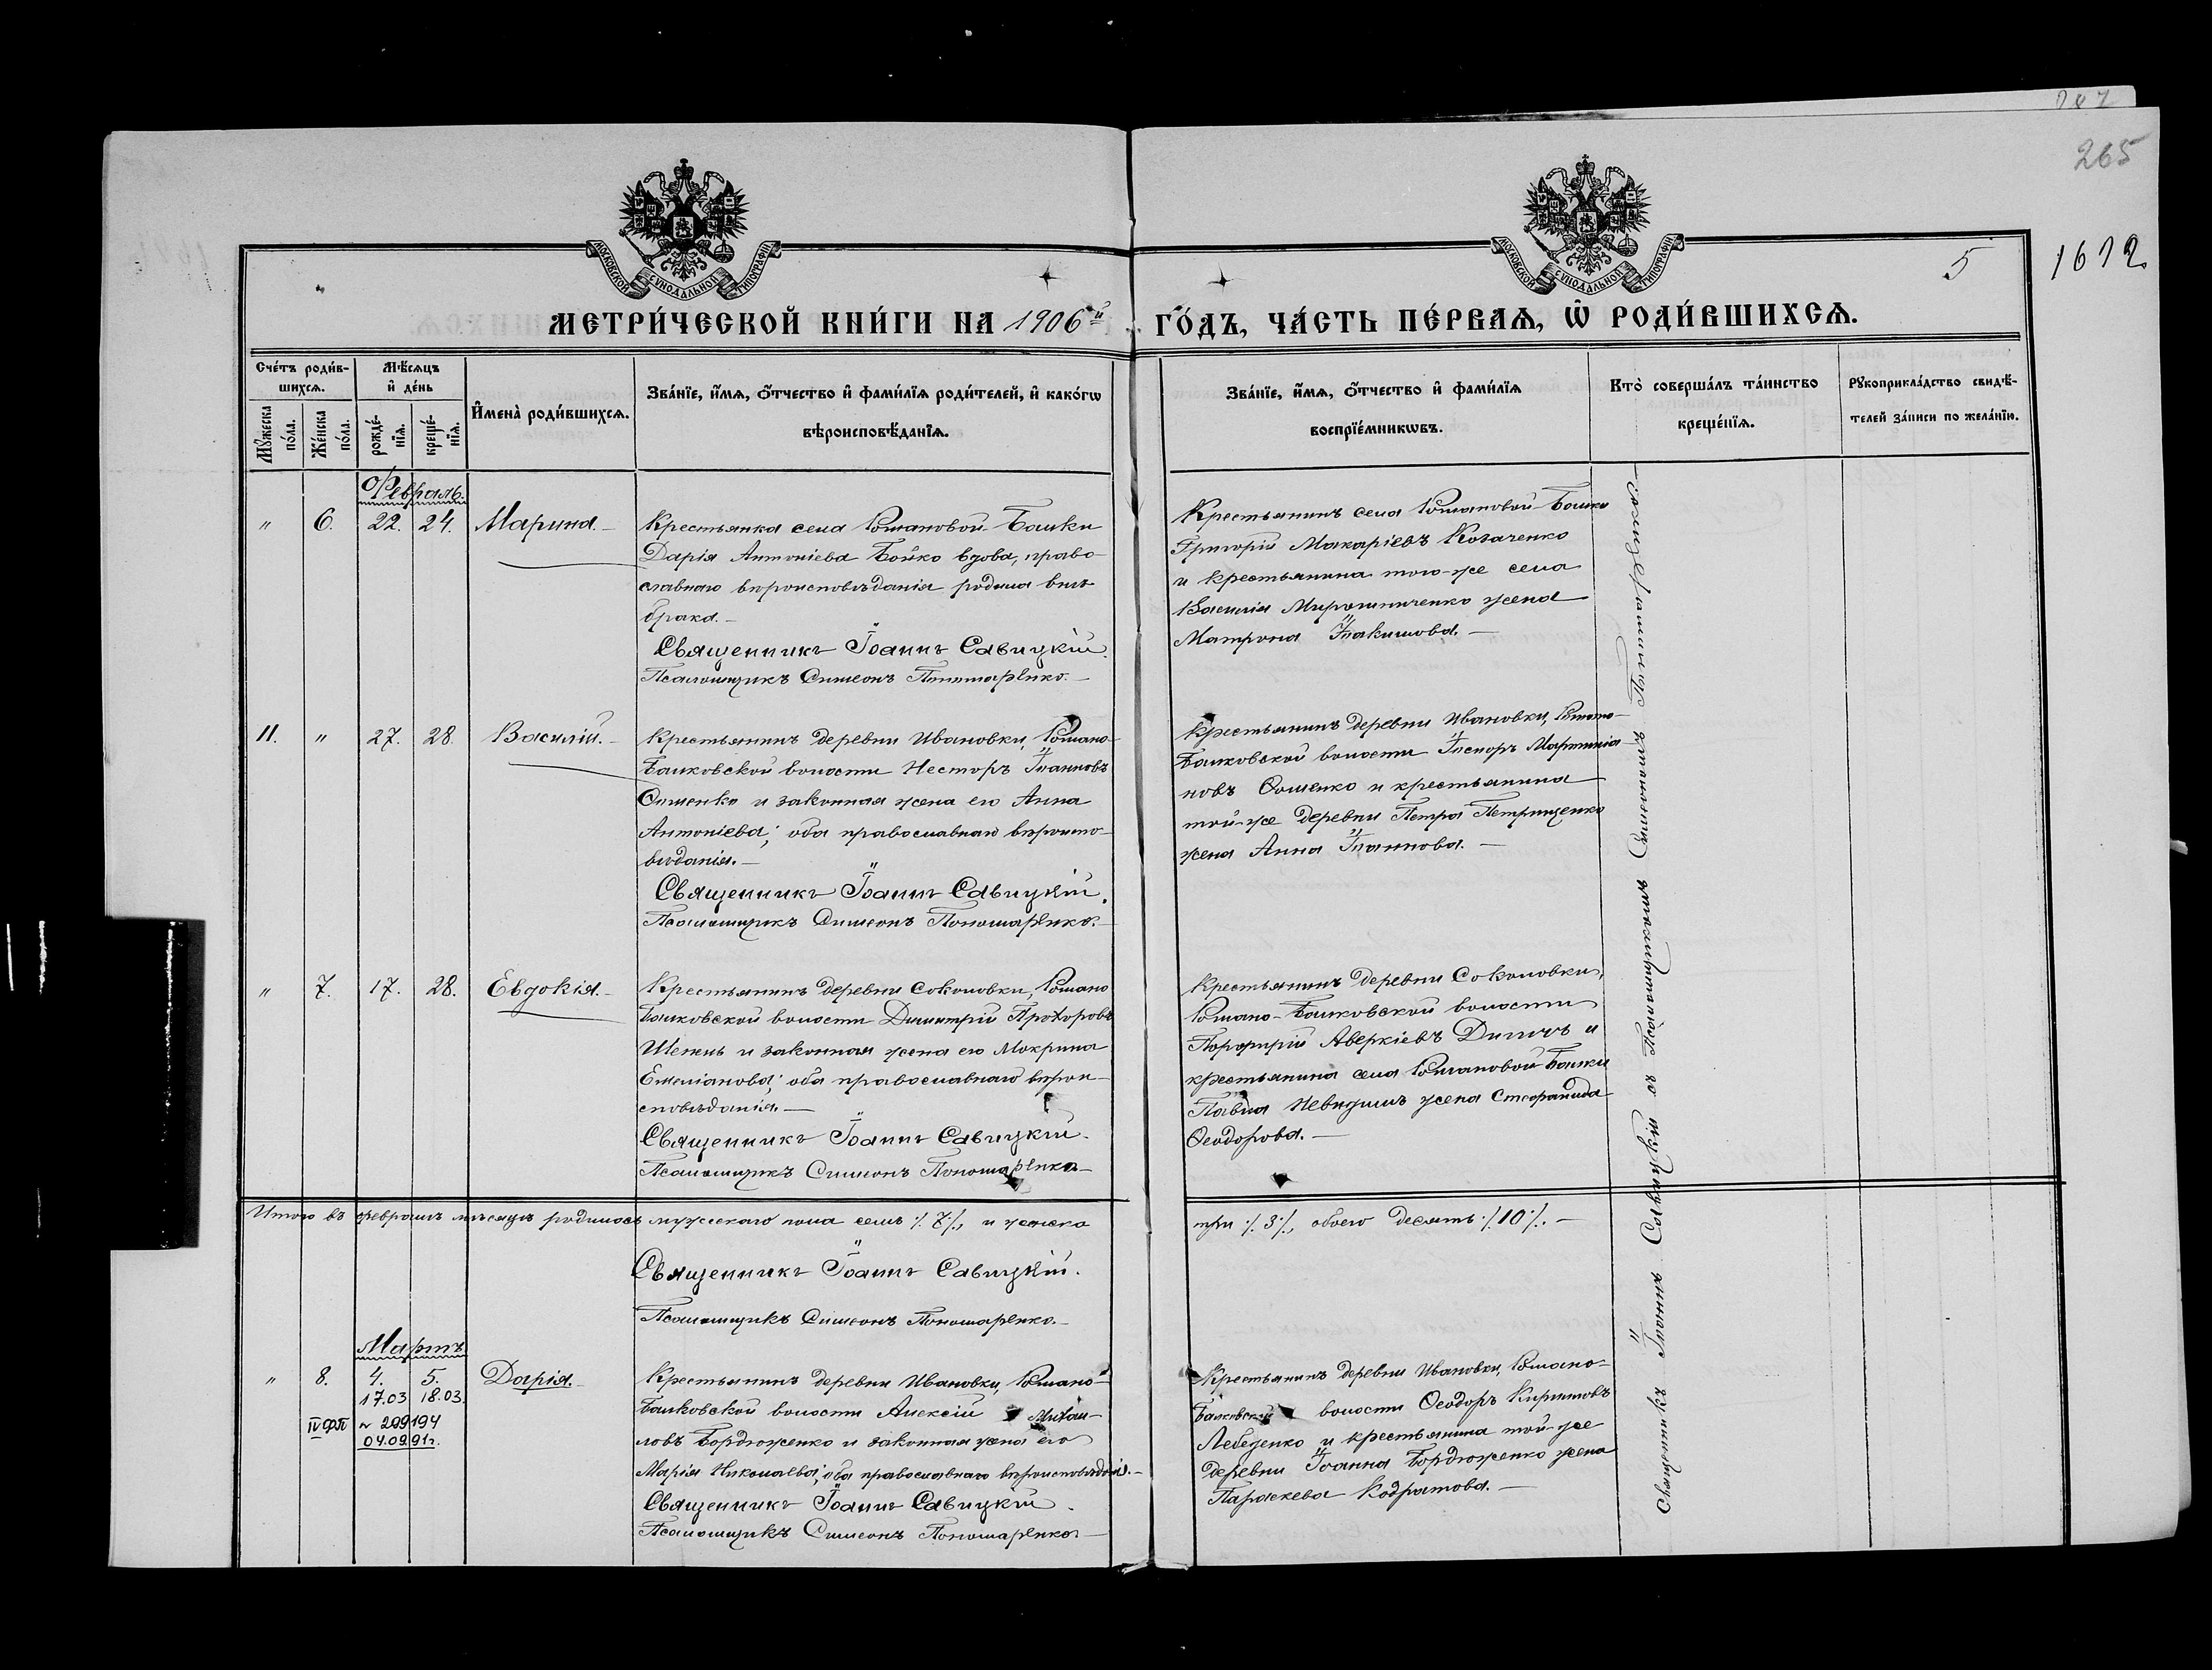 265
МОСКОВСКОЙ СѴНОДАЛЬНОЙ ТИПОГРАФІИ
МОСКОВСКОЙ СѴНОДАЛЬНОЙ ТИПОГРАФІИ
5
1612.
МЕТРИ́ЧЕСКОЙ КНИ́ГИ НА 1906й ГО́ДЪ, ЧА́СТЬ ПЕ́РВАѦ, Ѡ҆ РОДИ́ВШИХСѦ.
Сче́тъ роди́в-
шихсѧ.
Мꙋ́жеска по́ла.
Же́нска по́ла.
Мѣ́сѧцъ
и҆ де́нь
рожде́-
нїѧ.
креще́-
нїѧ.
И҆мена̀ роди́вшихсѧ.
Зва́нїе, и҆́мѧ, ѻ҆́тчество и҆ фами́лїѧ роди́телей, и҆ како́гѡ
вѣроисповѣ́данїѧ.
Зва́нїе, и҆́мѧ, ѻ҆́тчество и҆ фами́лїѧ
воспрїе́мникѡвъ.
Кто̀ соверша́лъ та́инство
креще́нїѧ.
Рꙋкоприкла́дство свидѣ́-
телей за́писи по жела́нїю.
Февраль.
" 6. 22. 24. Марина.
Крестьянка села Романовой-Балки
Дарія Антоніева Бойко вдова, право-
славнаго вѣроисповѣданія родила внѣ
брака.
Священникъ Іоаннъ Савицкій.
Псаломщикъ Симеонъ Пономаренко.
Крестьянинъ села Романовой-Балки
Григорій Макаріевъ Козаченко
и крестьянина того-же села
Василія Мирошниченко жена
Матрона Іоакимова.
11. " 27. 28. Василій.
Крестьянинъ деревни Ивановки, Романо-
Балковской волости Несторъ Іоанновъ
Ѳоменко и законная жена его Анна
Антоніева; оба православнаго вѣроиспо-
вѣданія.
Священникъ Іоаннъ Савицкій.
Псаломщикъ Симеонъ Пономаренко.
Крестьянинъ деревни Ивановки, Романо-
Балковской волости Мартиніа-
новъ Ѳоменко и крестьянина
той-же деревни Петра Петрищенко
жена Анна Іоаннова.
" 7. 17. 28. Евдокія.
Крестьянинъ деревни Соколовки, Романо
Балковской волости Димитрій Прохоровъ
Шепель и законная жена его Мокрина
Емеліанова; оба православнаго вѣрои-
сповѣданія.
Священникъ Іоаннъ Савицкій.
Псаломщикъ Симеонъ Пономаренко
Крестьянинъ деревни Соколовки,
Романо-Балковской волости
Порфирій Аверкіевъ и
крестьянина села Романовой Балки
Павла жена Стефанида
Ѳеодорова.
Итого въ февралѣ мѣсяцѣ родилось мужескаго пола семь ./.7./., и женска три ./.3./., обоего десять ./.10./.
Священникъ Іоаннъ Савицкій.
Псаломщикъ Симеонъ Пономаренко.
Мартъ
" 8. 4. 5. Дарія.
17.03 18.03.
IV ФП № 299194
04.09.91г.
Крестьянинъ деревни Ивановки, Романо-
Балковской волости Алексій Михаи-
ловъ Бордюженко и законная жена его
Марія Николаева; оба православнаго вѣроисповѣданія.
Священникъ Іоаннъ Савицкій.
Псаломщикъ Симеонъ Пономаренко
Крестьянинъ деревни Ивановки, Романо-
Балковской волости Ѳеодоръ Кирилловъ
Лебеденко и крестьянина той-же
деревни Іоанна Бордюженко жена
Параскева Кодратова.
Священникъ Іоаннъ Савицкій съ Псаломщикомъ Симеономъ